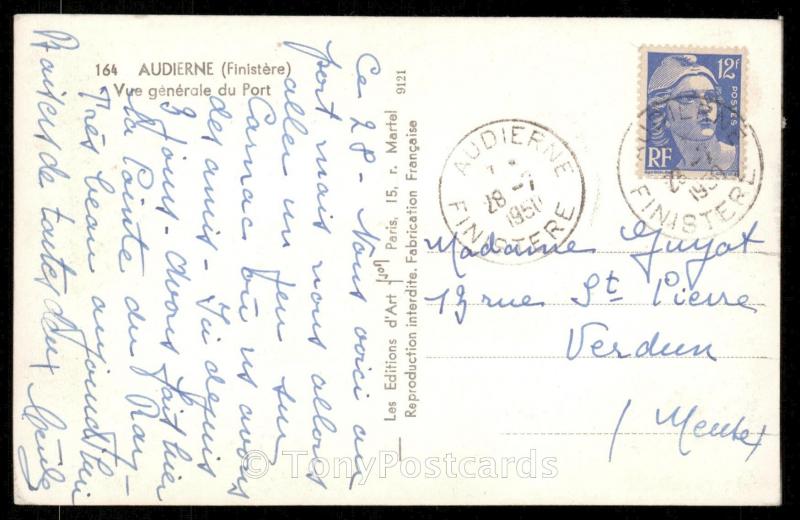 164 AUDIERNE (Finistère)
Vue générale du Port
Ce 28 - Nous voici au
port mais nous allons
aller un peu sur
Carnac où ns avons
des amis - Ici depuis
3 jours - avons fait hier
la Pointe du Raz -
Très beau aujourd'hui
Baisers de toutes deux Cécile
Les Editions d'Art Paris, 15, r. Martel
Reproduction interdite. Fabrication Française
9121
12F
POSTES
RF
AUDIERNE
28 -7
1950
FINISTERE
AUDIERNE
28
1950
FINISTERE
Madame Guyot
13 rue St Pierre
Verdun
(Meuse)
© TonyPostcards